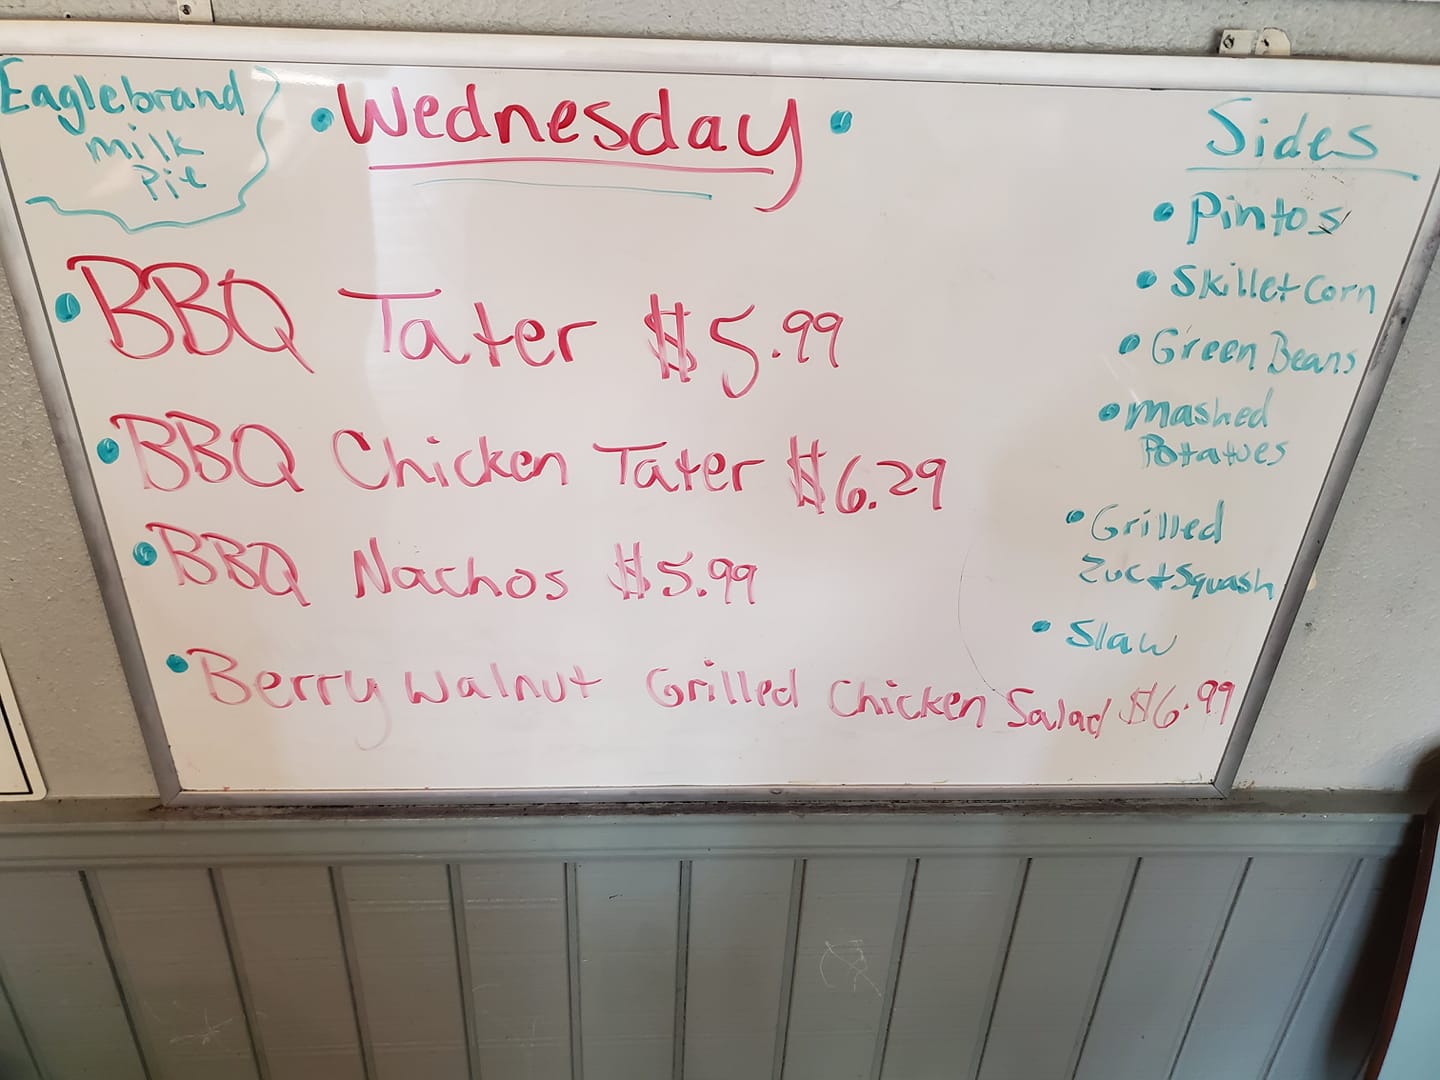 Eaglebrand
milk
Pie
• Wednesday •
• BBQ Tater $5.99
• BBQ Chicken Tater $6.29
• BBQ Nachos $5.99
• Berry Walnut Grilled Chicken Salad $6.99
Sides
• Pintos
• Skillet Corn
• Green Beans
• Mashed
Potatoes
• Grilled
Zuc + Squash
• Slaw